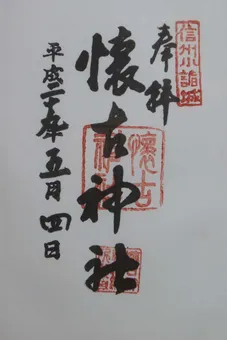 信州小諸城
奉拝
懐古神社
懐古
平成二十年五月四日